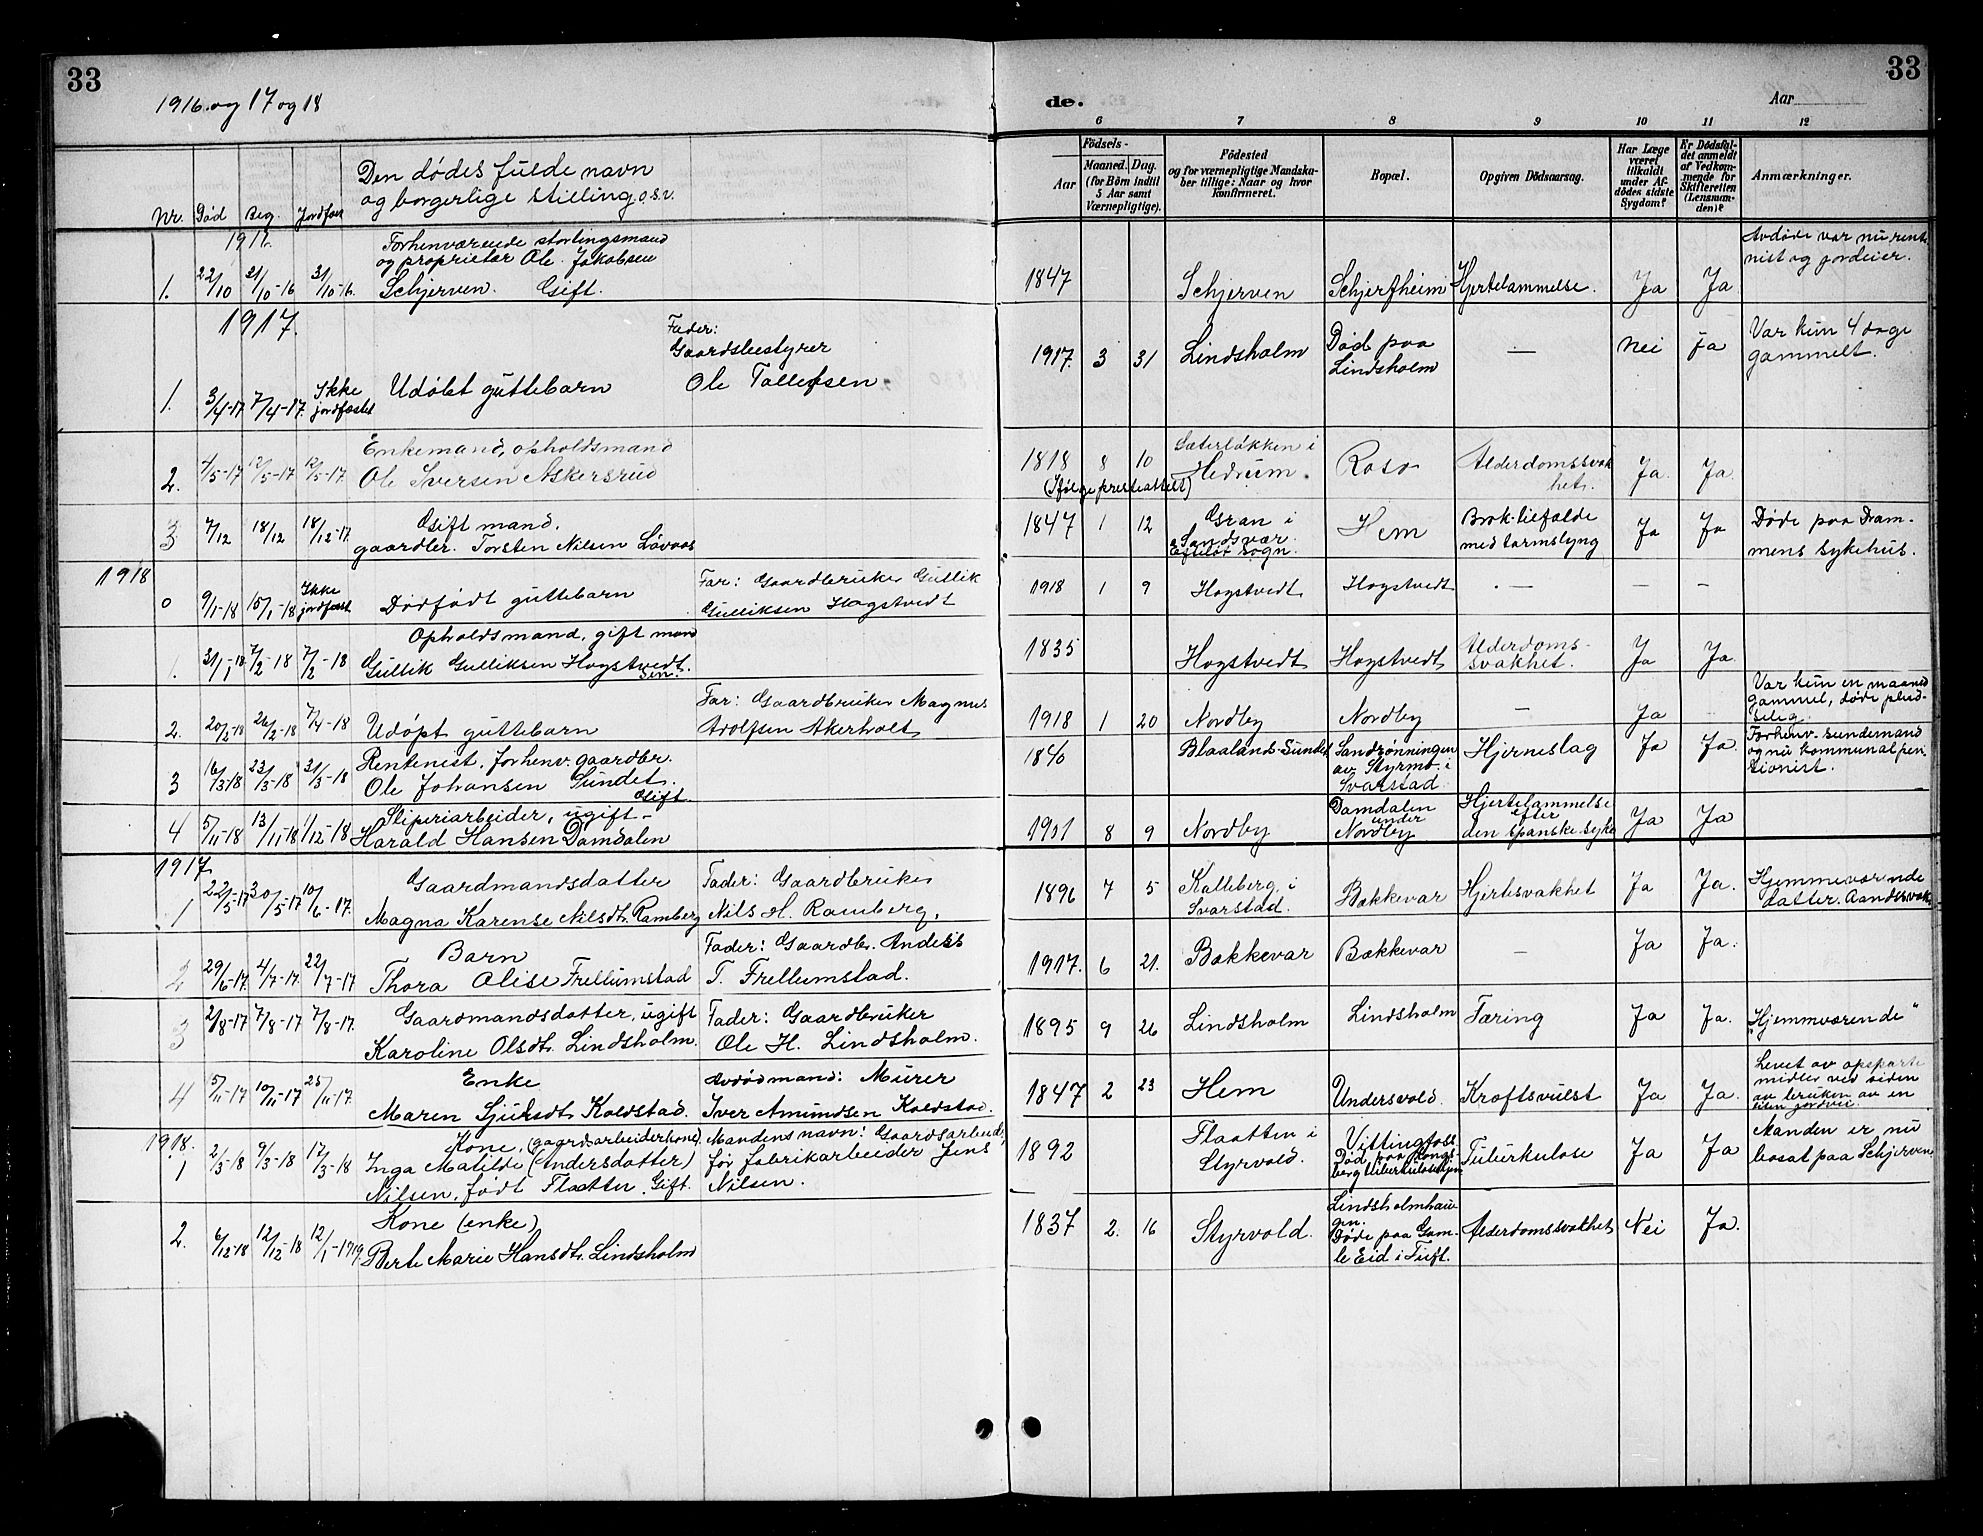 33
33
1916. og 17 og 18
de.
Aar
6 7 8 9 10 11 12
Nr. Død Beg. Jordfæst
Den dødes fulde navn
og borgerlige stilling o.s.v.
Aar
Födsels-
Maaned. Dag.
(for Børn indtil
5 Aar samt
Værnepligtige).
Födested
og for værnepligtige Mandska-
ber tillige: Naar og hvor
konfirmeret.
Bopæl.
Opgiven Dödsaarsag.
Har Læge
været
tilkaldt
under Af-
dödes sidste
Sygdom?
Er Dödsfal-
det anmeldt
af Vedkom-
mende for
Skifteretten
(Lensman-
den)?
Anmærkninger.
1916.
1. 22/10 31/10-16 31/10-16.
Forhenværende stortingsmand
og proprietær Ole Jakobsen
Schjerven. Gift.
1847 Schjerven Schjerfheim Hjertelammelse. Ja Ja
Avdøde var nu rente-
nist og jordeier.
1917.
1. 3/4-17 7/4-17. Ikke
jordfæstet
Udøbt guttebarn
Fader:
Gaardsbestyrer
Ole Tollefsen.
1917. 3 31 Lindsholm
Død paa
Lindsholm
— Nei Ja
Var kun 4 dage
gammelt.
2. 4/5-17 12/5-17 12/5-17.
Enkemand, opholdsmand
Ole Iversen Askersrud
1818 8 10
(Ifølge presteattest)
Sæterløkken i
Hedrum.
Roso
Alderdomssvak
het.
Ja. Ja.
3 7/12 18/12 18/12-17.
Gift mand.
gaardbr. Torsten Nilsen Løvaas
1847 1 12
Gran i
Sandsvær.
Efteløt sogn.
Hem
Brok tilfælde
med tarmslyng
Ja Ja
Døde paa Dram-
mens sykehus.
1918
0 9/1-18 15/1-18 Ikke
jordfæst
Dødfødt guttebarn
Far: Gaardbruker Gullik
Gulliksen Hogstvedt
1918 1 9 Hogstvedt Hogstvedt — — —
1. 31/1-18 7/2-18 7/2-18
Opholdsmand, gift mand
Gullik Gulliksen Hogstvedt.
sen.
1835 Hogstvedt Hogstvedt
Alderdoms-
svakhet.
Ja Ja.
2. 20/2-18 26/2-18 7/4-18
Udøpt guttebarn
Far: Gaardbruker Magnus
Adolfsen Akerholt
1918 1 20 Nordby Nordby — Ja —
Var kun en maaned
gammel, døde plud-
selig.
3 16/3-18 23/3-18 31/3-18
Rentenist, forhenv. gaardbr.
Ole Johansen Sundet.
Gift.
1840 Blaaland-Sundet
Sandrønningen
av Styrmo i
Svarstad
Hjerneslag Ja Ja.
Forhenv. sundemand
og nu kommunalpen-
tionist.
4 5/11-18 13/11-18 1/12-18
Sliperiarbeider, ugift —
Harald Hansen Damdalen
1901 8 9 Nordby
Damdalen
under
Nordby
Hjertelammelse
efter
den spanske syke
Ja Ja
1917
1 22/5-17 30/5-17 10/6-17.
Gaardmandsdatter
Magna Karense Nilsdt. Ramberg
Fader: Gaardbruker
Nils H. Ramberg.
1896 7 5
Kalleberg i
Svarstad.
Bakkevar Hjertesvakhet Ja Ja.
Hjemmeværende
datter. Aandssvak.
2 29/6-17. 4/7-17. 22/7-17
Barn
Thora Olise Frellumstad
Fader: Gaardbr. Anders
T. Frellumstad.
1917. 6 21. Bakkevar Bakkevar — Ja Ja.
3 2/8-17 7/8-17 7/8-17.
Gaardmandsdatter, ugift
Karoline Olsdt. Lindsholm.
Fader: Gaardbruker
Ole H. Lindsholm.
1895 9 26 Lindsholm Lindsholm Tæring Ja Ja.
"Hjemmværende"
4 5/11-17 10/11-17 25/11-17.
Enke
Maren Sjulsdt. Koldstad.
Avdødmand: Murer
Iver Amundsen Koldstad.
1847 2 23 Hem Undersvold. Kræftsvulst Ja Ja.
Levet av opsparte
midler ved siden
av bruken av en
liten jordvei.
1918.
1 2/3-18 9/3-18 17/3-18
Kone, (gaardsarbeiderkone).
Inga Matilde (Andersdatter)
Nilsen, født Flaatten. Gift.
Mandens navn: Gaardsarbeid.,
før fabrikarbeider Jens
Nilsen.
1892
Flaatten i
Styrvold.
Vittingfoss
Død paa Kongs-
berg tuberkulosehjem
Tuberkulose Ja Ja
Manden er nu
bosat paa Schjerven.
2. 6/12-18 12/12-18 12/1-1919.
Kone (enke)
Berte Marie Hansdt. Lindsholm
1837 2. 16 Styrvold.
Lindsholmhau-
gen.
Døde paa Gam-
le Eid i Tuft.
Alderdomssvakhet Nei Ja.